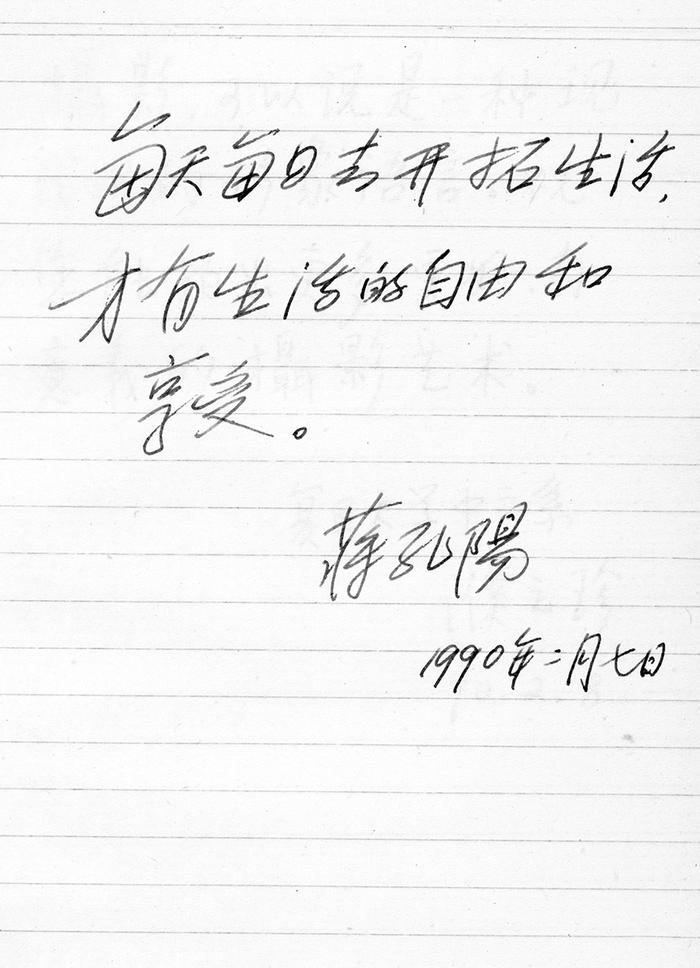 每天每日去开拓生活,
才有生活的自由和
享受。
蒋孔陽
1990年二月七日